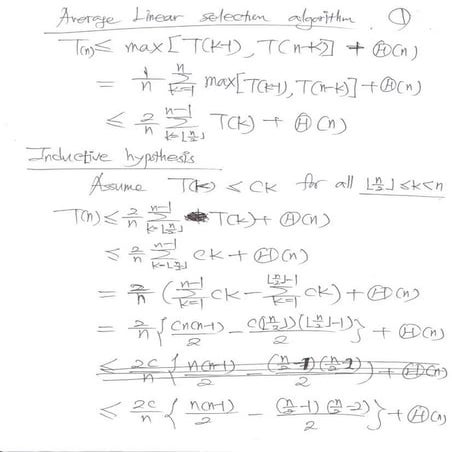 Average Linear selection algorithm. ①
T(n) ≤ max[T(k-1), T(n-k)] + Ⓗ(n)
= 1/n ∑_{k=1}^{n} max[T(k-1), T(n-k)] + Ⓗ(n)
≤ 2/n ∑_{k=⌊n/2⌋}^{n-1} T(k) + Ⓗ(n)
Inductive hypothesis
Assume T(k) ≤ ck for all ⌊n/2⌋ ≤ k < n
T(n) ≤ 2/n ∑_{k=⌊n/2⌋}^{n-1} T(k) + Ⓗ(n)
≤ 2/n ∑_{k=⌊n/2⌋}^{n-1} ck + Ⓗ(n)
= 2/n (∑_{k=1}^{n-1} ck - ∑_{k=1}^{⌊n/2⌋-1} ck) + Ⓗ(n)
= 2/n { cn(n-1)/2 - c(⌊n/2⌋)(⌊n/2⌋-1)/2 } + Ⓗ(n)
≤ 2c/n { n(n-1)/2 - (n/2-1)(n/2-2)/2 } + Ⓗ(n)
≤ 2c/n { n(n-1)/2 - (n/2-1)(n/2-2)/2 } + Ⓗ(n)